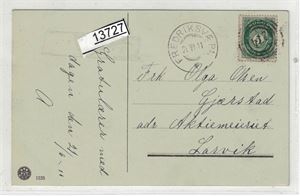 13727
FREDRIKSVÆRN
21 VI 11
Frk Olga Olsen
Gjærstad
adr Aktiemeieriet
Larvik
Gratulerer med
dagen den 21/6-11
A
1025